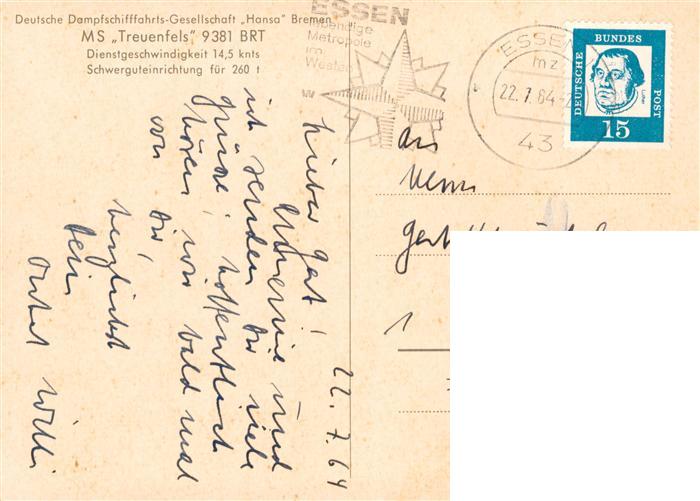 Deutsche Dampfschifffahrts-Gesellschaft „Hansa" Bremen
MS „Treuenfels" 9381 BRT
Dienstgeschwindigkeit 14,5 knts
Schwerguteinrichtung für 260 t
ESSEN
lebendige
Metropole
im
Westen
W
ESSEN
mz
22.7.64
43
DEUTSCHE BUNDES POST
Luther
15
22.7.64
Lieber Gert!
und
ich senden Dir viele
Grüße, hoffentlich
hören wir bald mal
von Dir,
herzlichst
Dein
Onkel Willi
An
Herrn
1